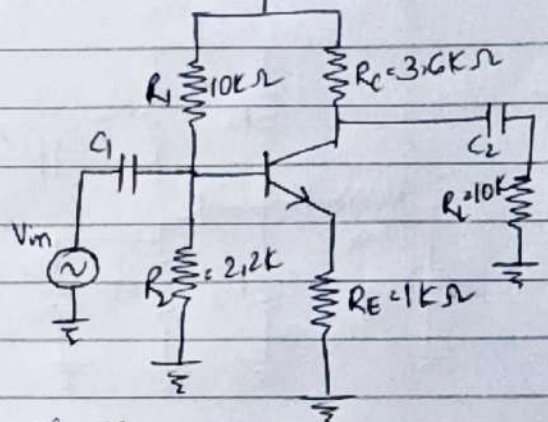 R1 10KΩ
RC=3.6KΩ
C1
C2
Vin
RL=10K
R2 =2.2K
RE=1KΩ